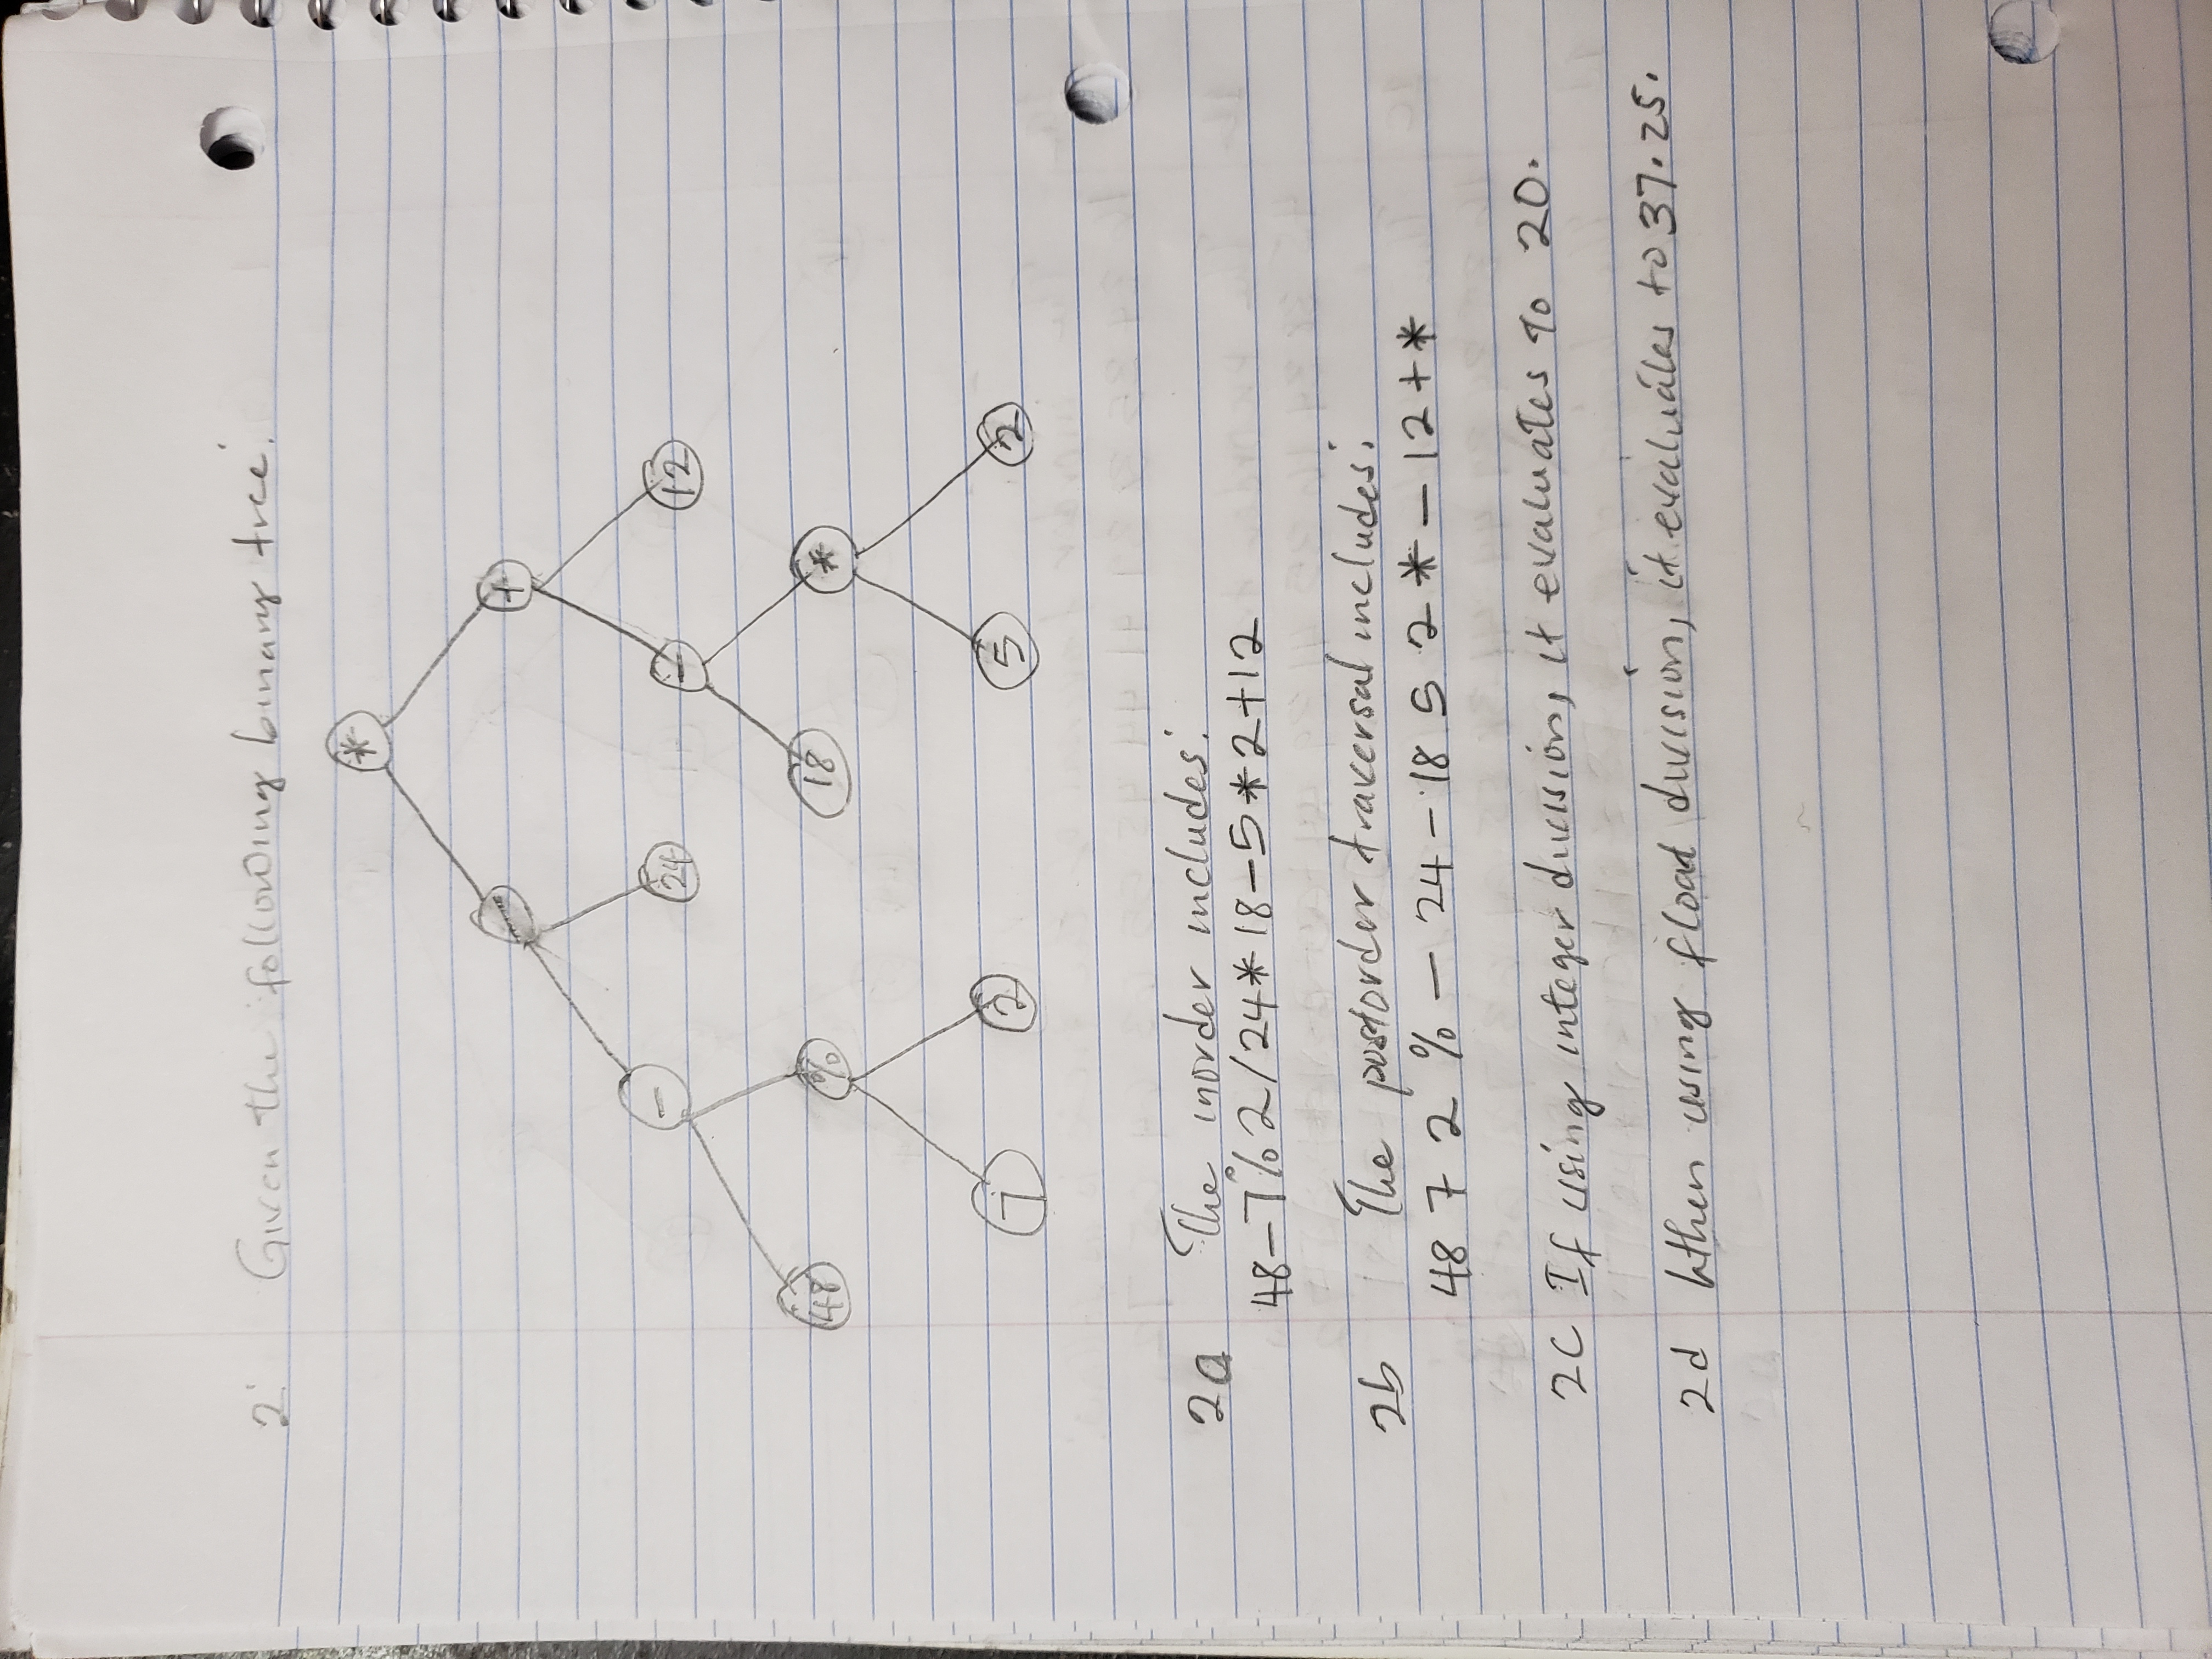 2. Given the following binary tree.
*
+
-
24
-
12
48
%
18
*
7
2
5
2
2a The inorder includes:
48-7%2/24*18-5*2+12
2b The postorder traversal includes:
48 7 2 % - 24 - 18 5 2 * - 12 + *
2c If using integer division, it evaluates to 20.
2d When using float division, it evaluates to 37.25.